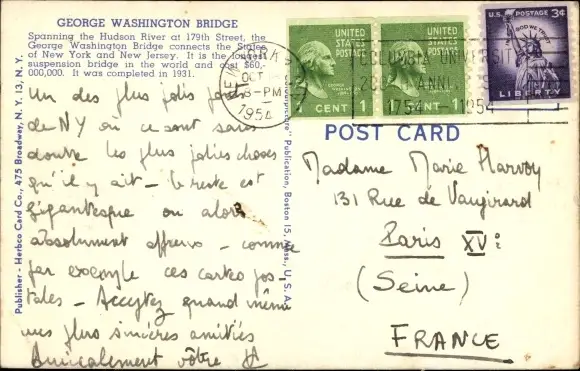 GEORGE WASHINGTON BRIDGE
Spanning the Hudson River at 179th Street, the
George Washington Bridge connects the States
of New York and New Jersey. It is the longest
suspension bridge in the world and cost $60,-
000,000. It was completed in 1931.
Un des plus jolis ponts
de NY où ce sont sans
doute les plus jolies choses
qu'il y ait - le reste est
gigantesque ou alors
absolument affreux - comme
par exemple ces cartes pos-
tales - Acceptez quand même
mes plus sincères amitiés
Amicalement vôtre
Publisher - Herbco Card Co., 475 Broadway, N. Y. 13, N. Y.
"Colourpicture" Publication, Boston 15, Mass., U. S. A.
NEW YORK
OCT
8-PM
1954
COLUMBIA UNIVERSITY
ANNI
1754-1954
UNITED STATES POSTAGE
1 CENT 1
UNITED STATES POSTAGE
1 CENT 1
U.S. POSTAGE 3¢
IN GOD WE TRUST
LIBERTY
POST CARD
Madame Marie Harvoy
131 Rue de Vaugirard
Paris XVe
(Seine)
FRANCE